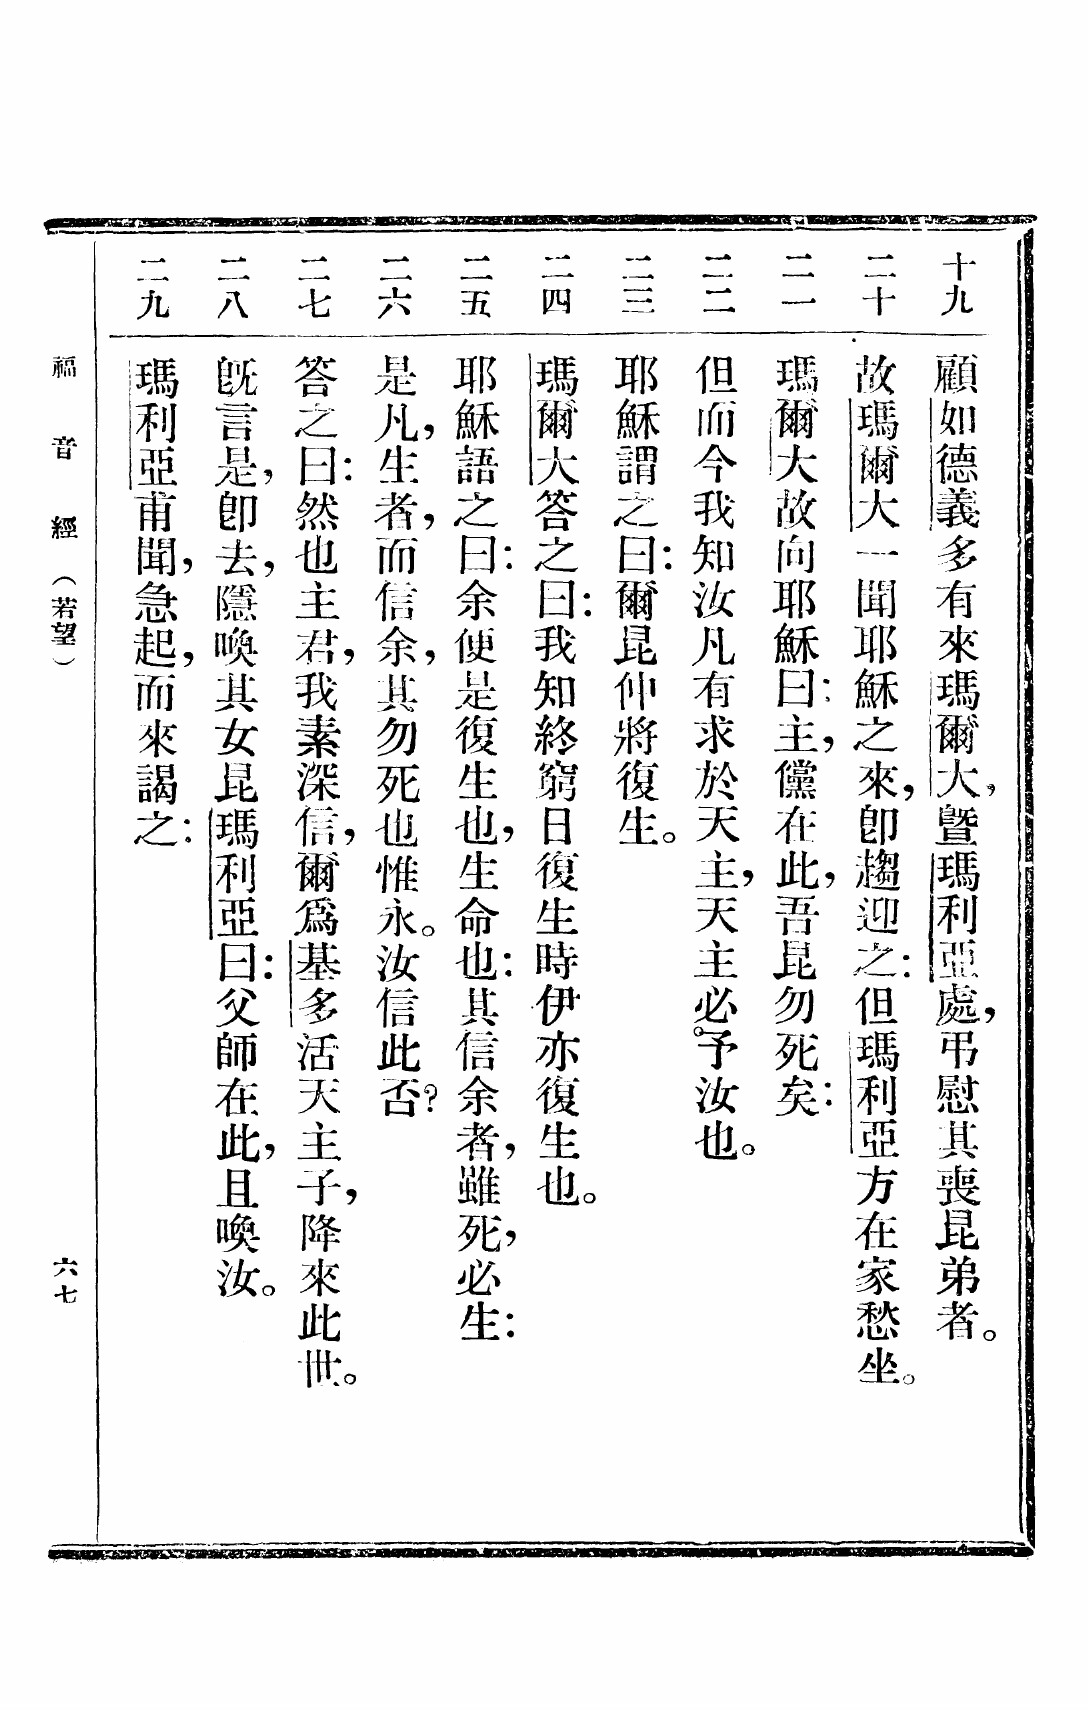 十九 顧如德義多有來瑪爾大，曁瑪利亞處，弔慰其喪昆弟者。
二十 故瑪爾大一聞耶穌之來，卽趨迎之：但瑪利亞方在家愁坐。
二一 瑪爾大故向耶穌曰：主，儻在此，吾昆勿死矣：
二二 但而今我知汝凡有求於天主，天主必予汝也。
二三 耶穌謂之曰：爾昆仲將復生。
二四 瑪爾大答之曰：我知終窮日復生時伊亦復生也。
二五 耶穌語之曰：余便是復生也，生命也：其信余者，雖死，必生：
二六 是凡，生者，而信余，其勿死也惟永。汝信此否？
二七 答之曰：然也主君，我素深信，爾爲基多活天主子，降來此世。
二八 旣言是，卽去，隱喚其女昆瑪利亞曰：父師在此，且喚汝。
二九 瑪利亞甫聞，急起，而來謁之：
福音經（若望）
六七